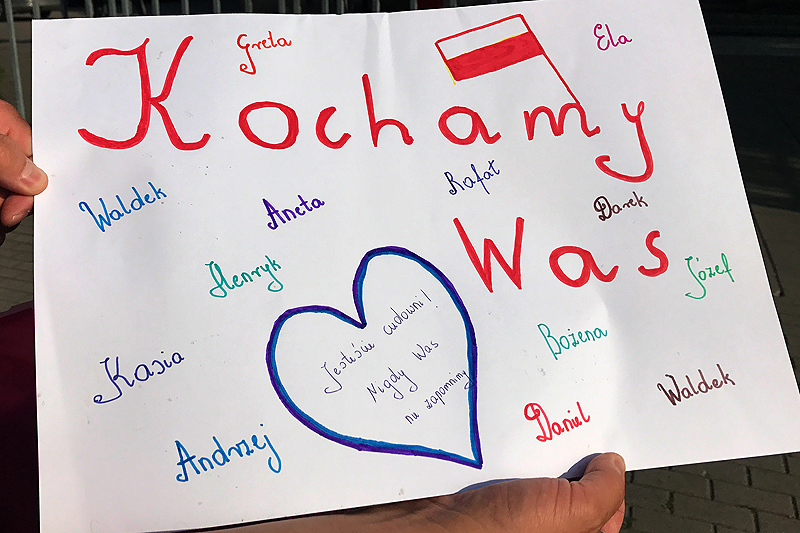 Greta
Ela
Kochamy
Rafał
Waldek
Aneta
Darek
Was
Henryk
Józef
Jesteście cudowni!
Nigdy Was
nie zapomnimy
Bożena
Kasia
Waldek
Daniel
Andrzej